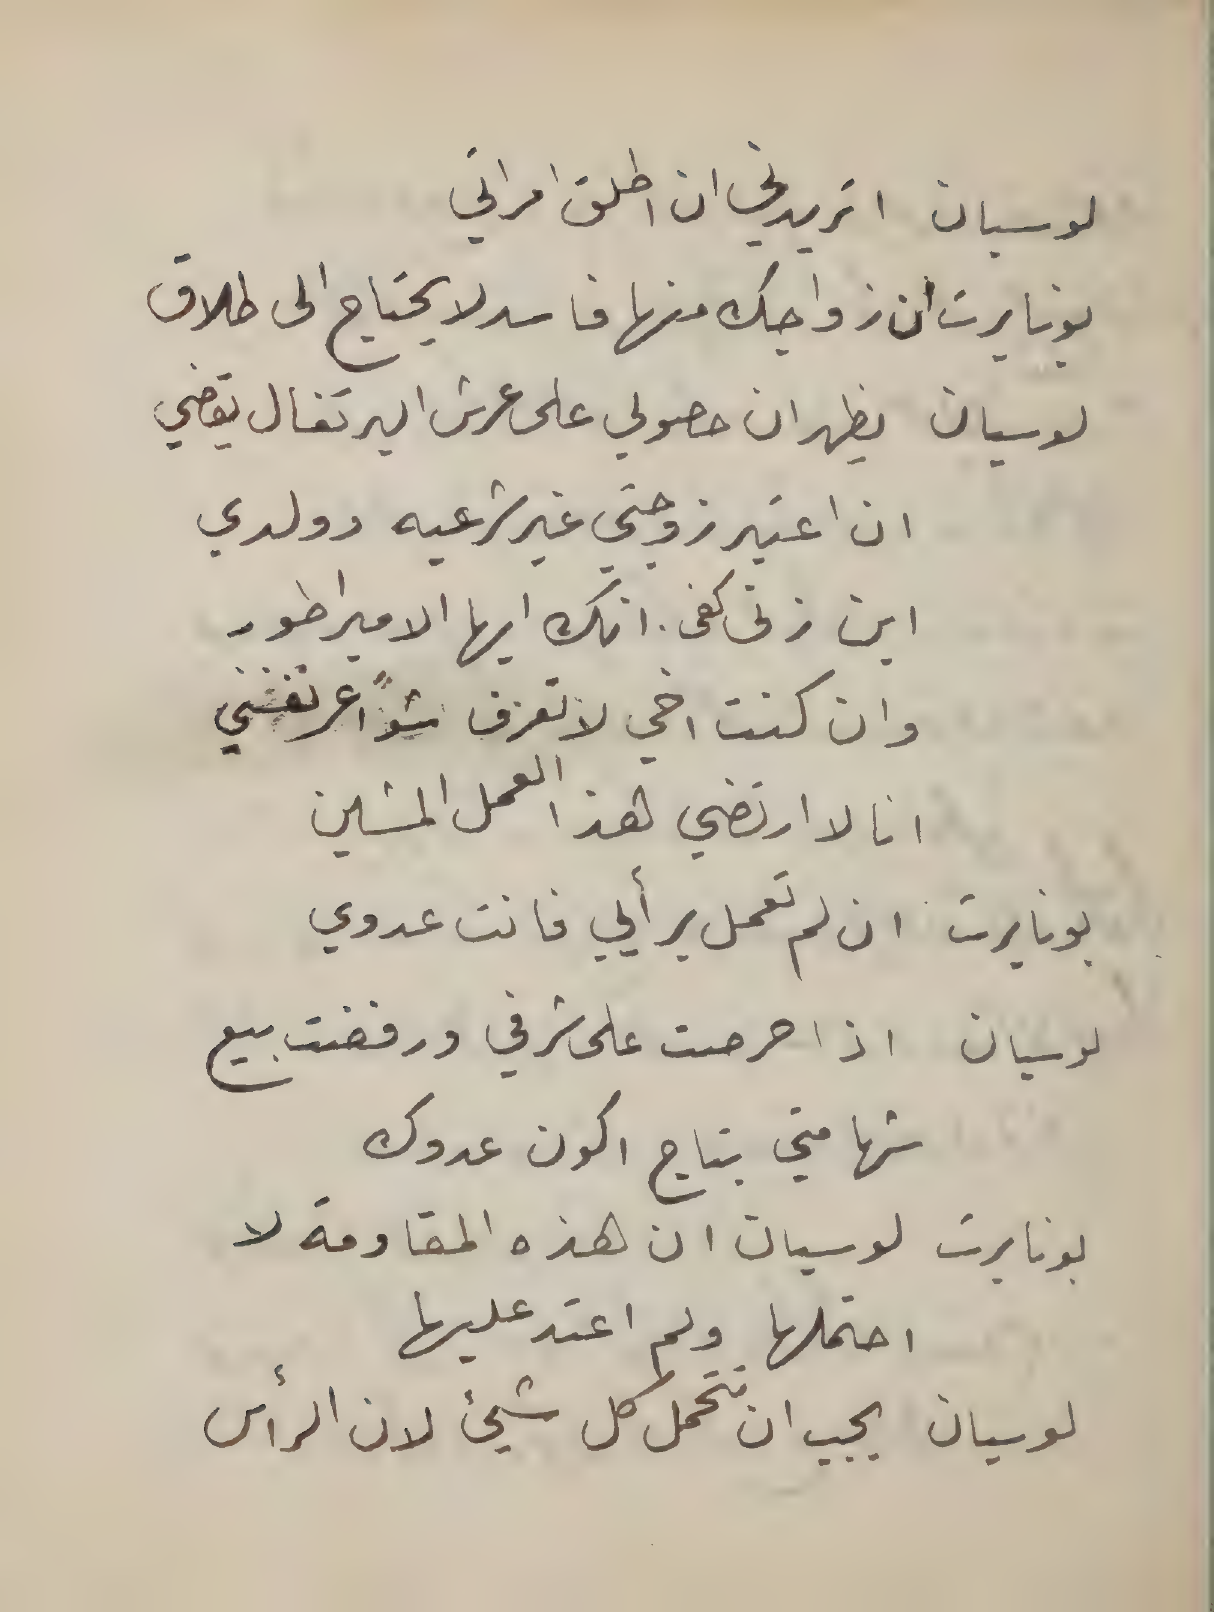 لوسيان اتريدني ان اطلق امراتي
بونابرت ان زواجك منها فاسد لا يحتاج الى طلاق
لوسيان يظهر ان حصولي على عرش البرتغال يقضي
ان اعتبر زوجتي غير شرعيه وولدي
ابن زنى كفى. انك ايها الامبراطور
وان كنت اخي لا تعرف
انا لا ارتضي هذا العمل المشين
بونابرت ان لم تعمل برأيي فانت عدوي
لوسيان اذا حرصت على شرفي ورفضت بيع
شهامتي بتاج اكون عدوك
بونابرت لوسيان ان هذه المقاومة لا
احتملها ولم اعتد عليها
لوسيان يجب ان تتحمل كل شيئ لان الرأس